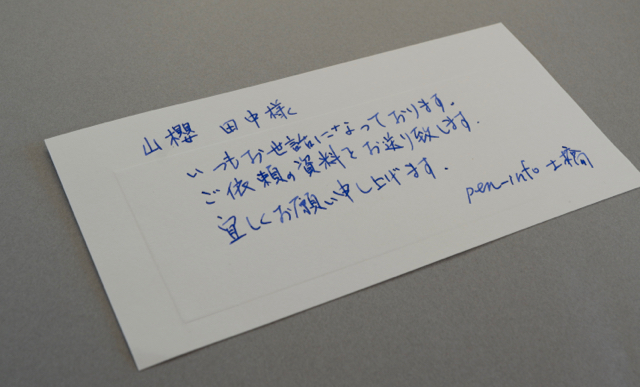 山櫻 田中様
いつもお世話になっております。
ご依頼の資料をお送り致します。
宜しくお願い申し上げます。
pen-info 土橋